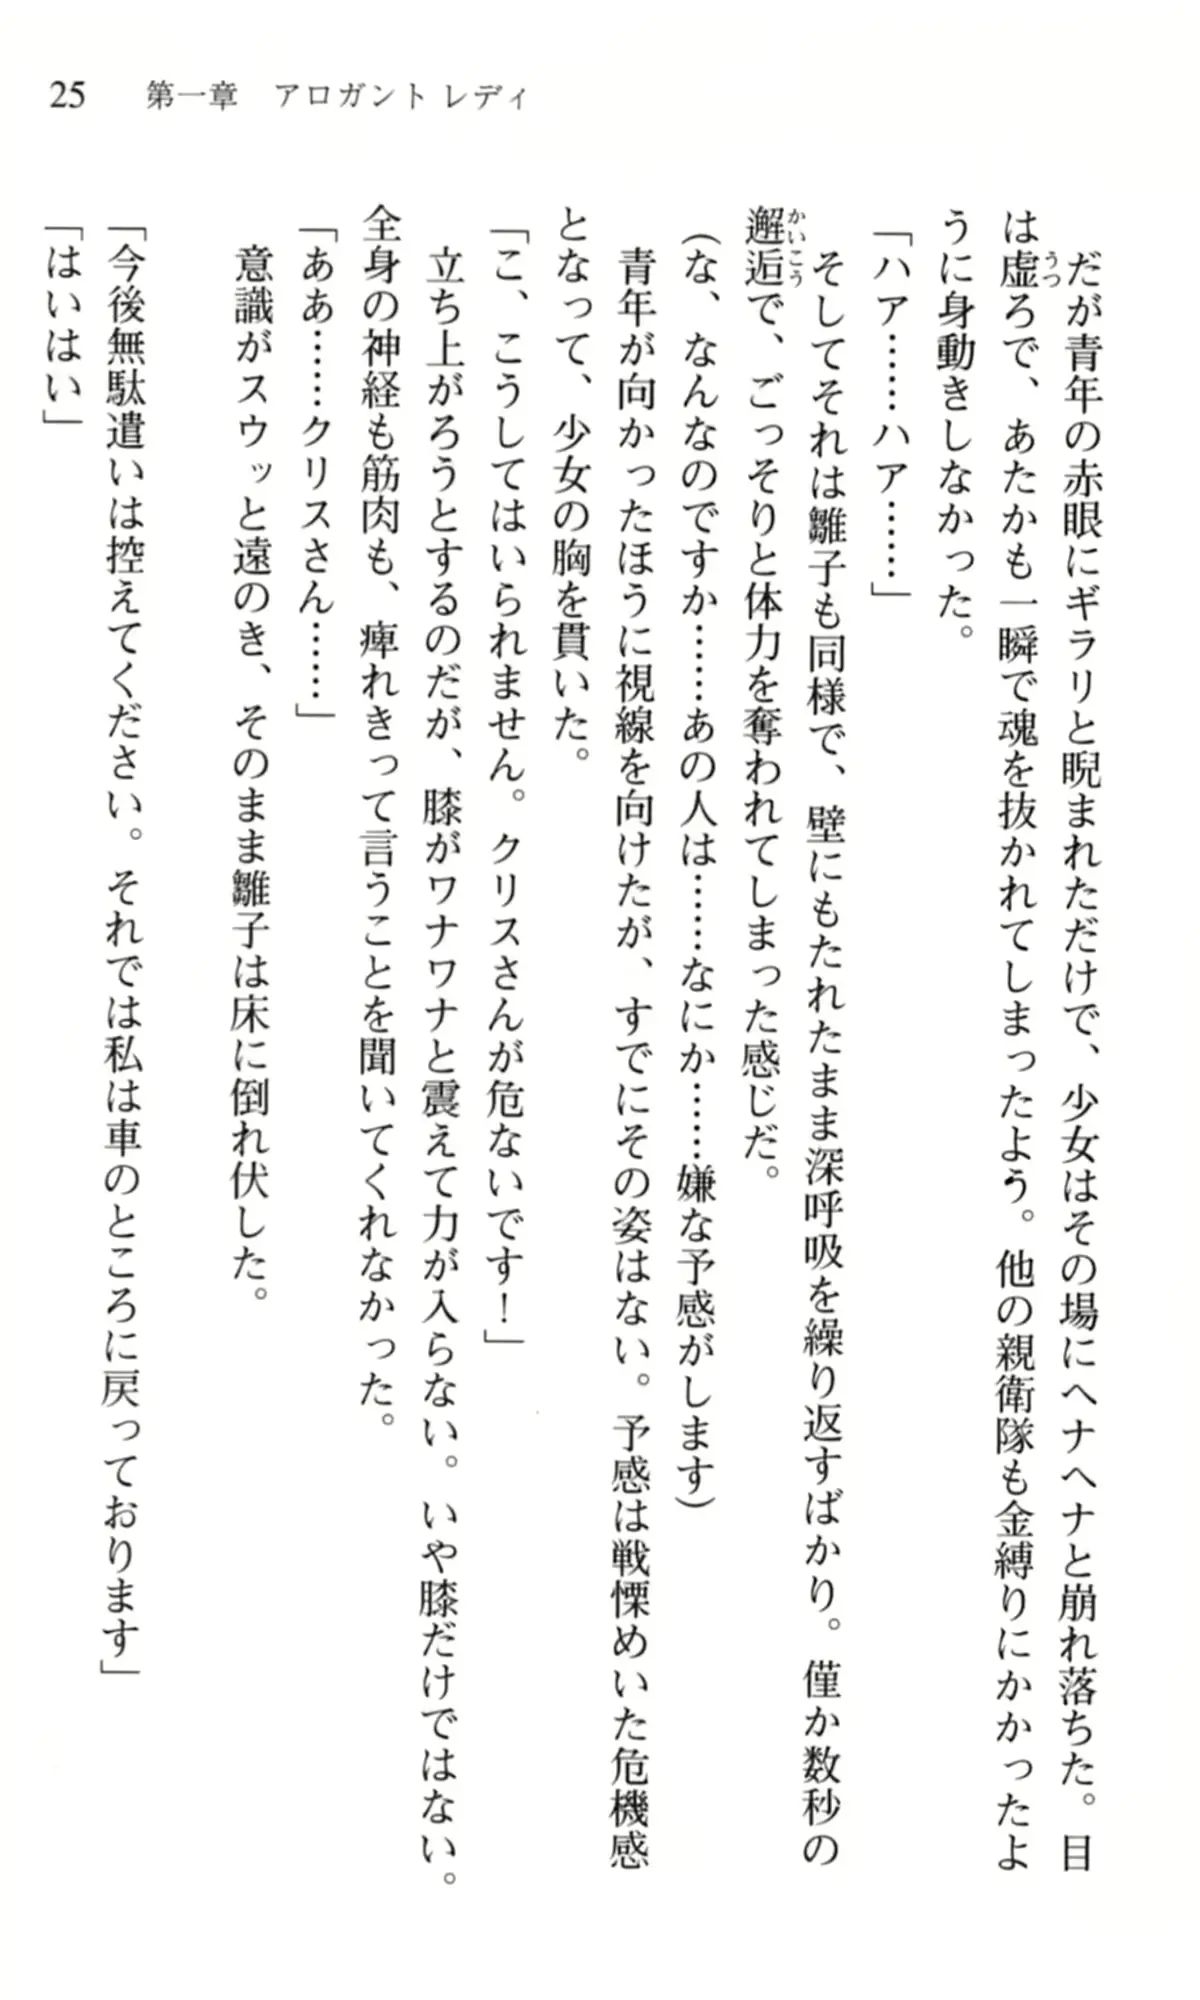 25　第一章　アロガント レディ
だが青年の赤眼にギラリと睨まれただけで、少女はその場にヘナヘナと崩れ落ちた。目
は虚ろで、あたかも一瞬で魂を抜かれてしまったよう。他の親衛隊も金縛りにかかったよ
うに身動きしなかった。
「ハア……ハア……」
そしてそれは雛子も同様で、壁にもたれたまま深呼吸を繰り返すばかり。僅か数秒の
邂逅で、ごっそりと体力を奪われてしまった感じだ。
(な、なんなのですか……あの人は……なにか……嫌な予感がします)
青年が向かったほうに視線を向けたが、すでにその姿はない。予感は戦慄めいた危機感
となって、少女の胸を貫いた。
「こ、こうしてはいられません。クリスさんが危ないです！」
立ち上がろうとするのだが、膝がワナワナと震えて力が入らない。いや膝だけではない。
全身の神経も筋肉も、痺れきって言うことを聞いてくれなかった。
「ああ……クリスさん……」
意識がスウッと遠のき、そのまま雛子は床に倒れ伏した。
「今後無駄遣いは控えてください。それでは私は車のところに戻っております」
「はいはい」